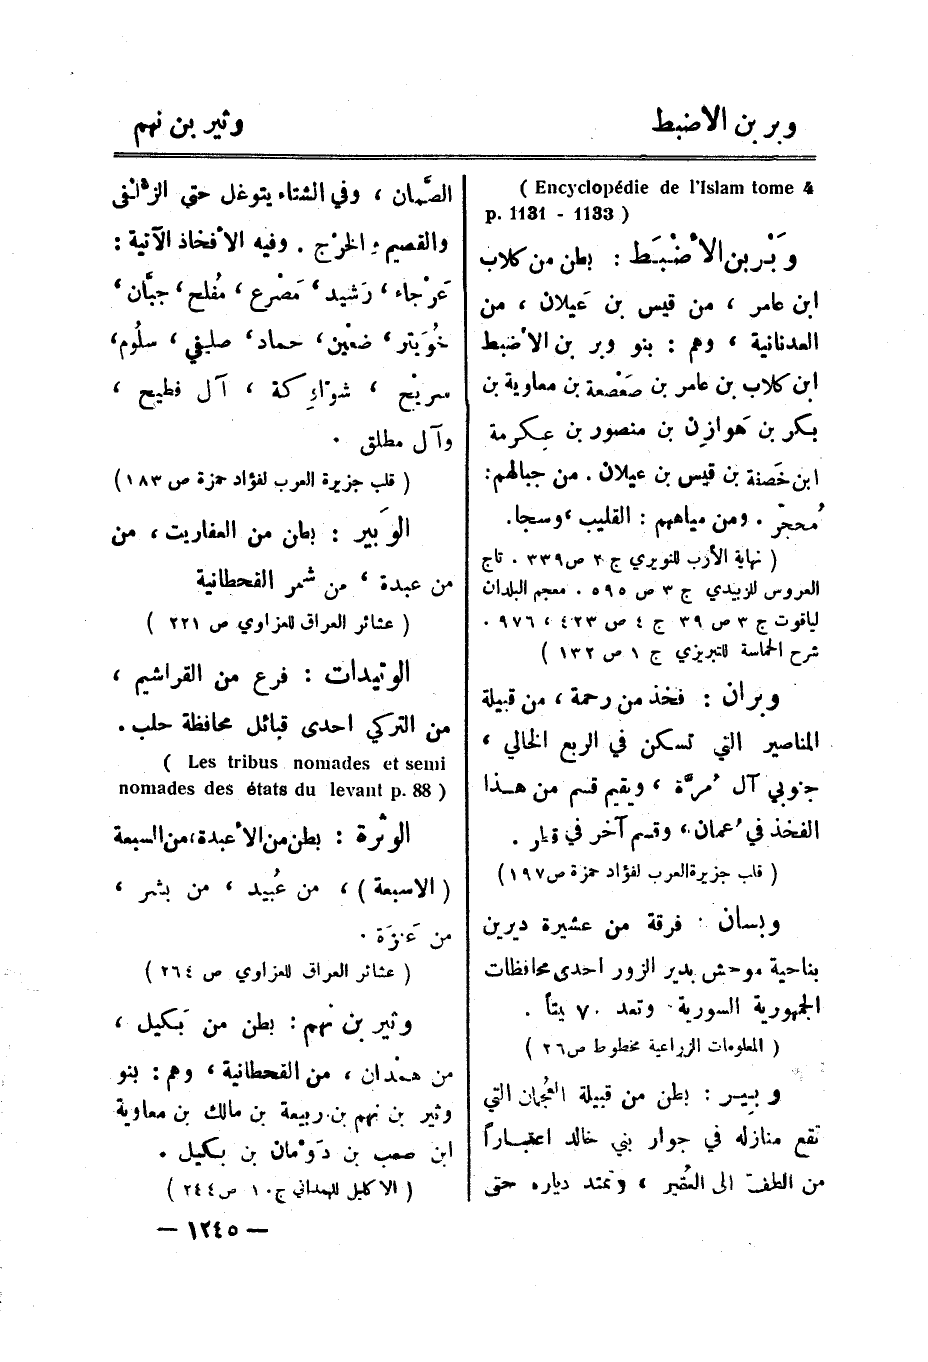 وبر بن الاضبط
وثير بن نهم
( Encyclopédie de l'Islam tome 4
p. 1131 - 1133 )
وَبْر بن الأَضْبَط : بطن من كلاب
ابن عامر ، من قيس بن عَيلان ، من
العدنانية ، وهم : بنو وبر بن الأضبط
ابن كلاب بن عامر بن صَعْصعة بن معاوية بن
بكر بن هَوازِن بن منصور بن عِكرمة
ابن خَصَفة بن قيس بن عيلان . من جبالهم:
مُحجّر . ومن مياههم : القليب ، وسجا.
( نهاية الأرب للنويري ج ٢ ص ٣٣٩ . تاج
العروس للزبيدي ج ٣ ص ٥٩٥ . معجم البلدان
لياقوت ج ٣ ص ٣٩ ج ٤ ص ٤٢٣ ، ٩٧٦ .
شرح الحماسة للتبريزي ج ١ ص ١٣٢ )
وبران : فخذ من رحمة ، من قبيلة
المناصير التي تسكن في الربع الخالي ،
جنوبي آل مُرَّة ، ويقيم قسم من هذا
الفخذ في عُمان ، وقسم آخر في
( قلب جزيرة العرب لفؤاد حمزة ص ١٩٧ )
وبسان : فرقة من عشيرة ديرين
بناحية موحش بدير الزور احدى محافظات
الجمهورية السورية . وتعد ٧٠ بيتاً .
( المعلومات الزراعية مخطوط ص ٢٦ )
وبير : بطن من قبيلة العُجمان التي
تقع منازله في جوار بني خالد اعتباراً
من الطف الى العُقير ، وتمتد دياره حتى
الصَّمان ، وفي الشتاء يتوغل حتى الزلفى
والقصيم والخرْج . وفيه الأفخاذ الآتية :
عَرْجاء ، رَشيد ، مَصْرع ، مُفلح ، جبَّان ،
خُوَيتر ، ضعْين ، حماد ، صليفي ، سلُوم ،
سريْح ، شواركة ، آل فطيح ،
وآل مطلق .
( قلب جزيرة العرب لفؤاد حمزة ص ١٨٣ )
الوَبير : بطن من العفاريت ، من
من عبدة ، من شمر القحطانية
( عشائر العراق للعزاوي ص ٢٢١ )
الوتيدات : فرع من القراشيم ،
من التركي احدى قبائل محافظة حلب .
( Les tribus nomades et semi
nomades des états du levant p. 88 )
الوثْرة : بطن من الأعبدة ، من السبعة
( الاسبعة ) ، من عُبيد ، من بشر ،
من عَنزَة .
( عشائر العراق للعزاوي ص ٢٦٤ )
وثير بن نهم : بطن من بَكيل ،
من همْدان ، من القحطانية ، وهم : بنو
وثير بن نهم بن ربيعة بن مالك بن معاوية
ابن صعب بن دَوْمان بن بكيل .
( الاكليل للهمداني ج ١٠ ص ٢٤٤ )
— ١٢٤٥ —